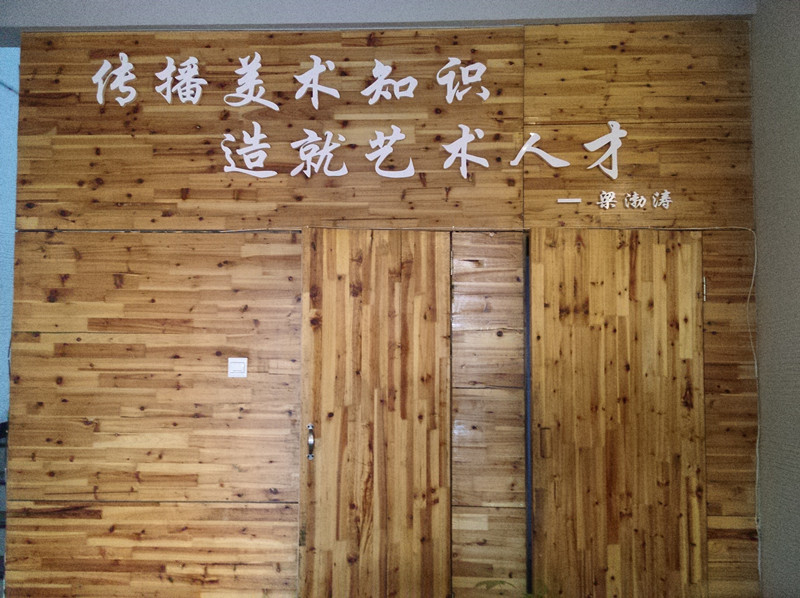 传播美术知识
造就艺术人才
— 梁渤涛